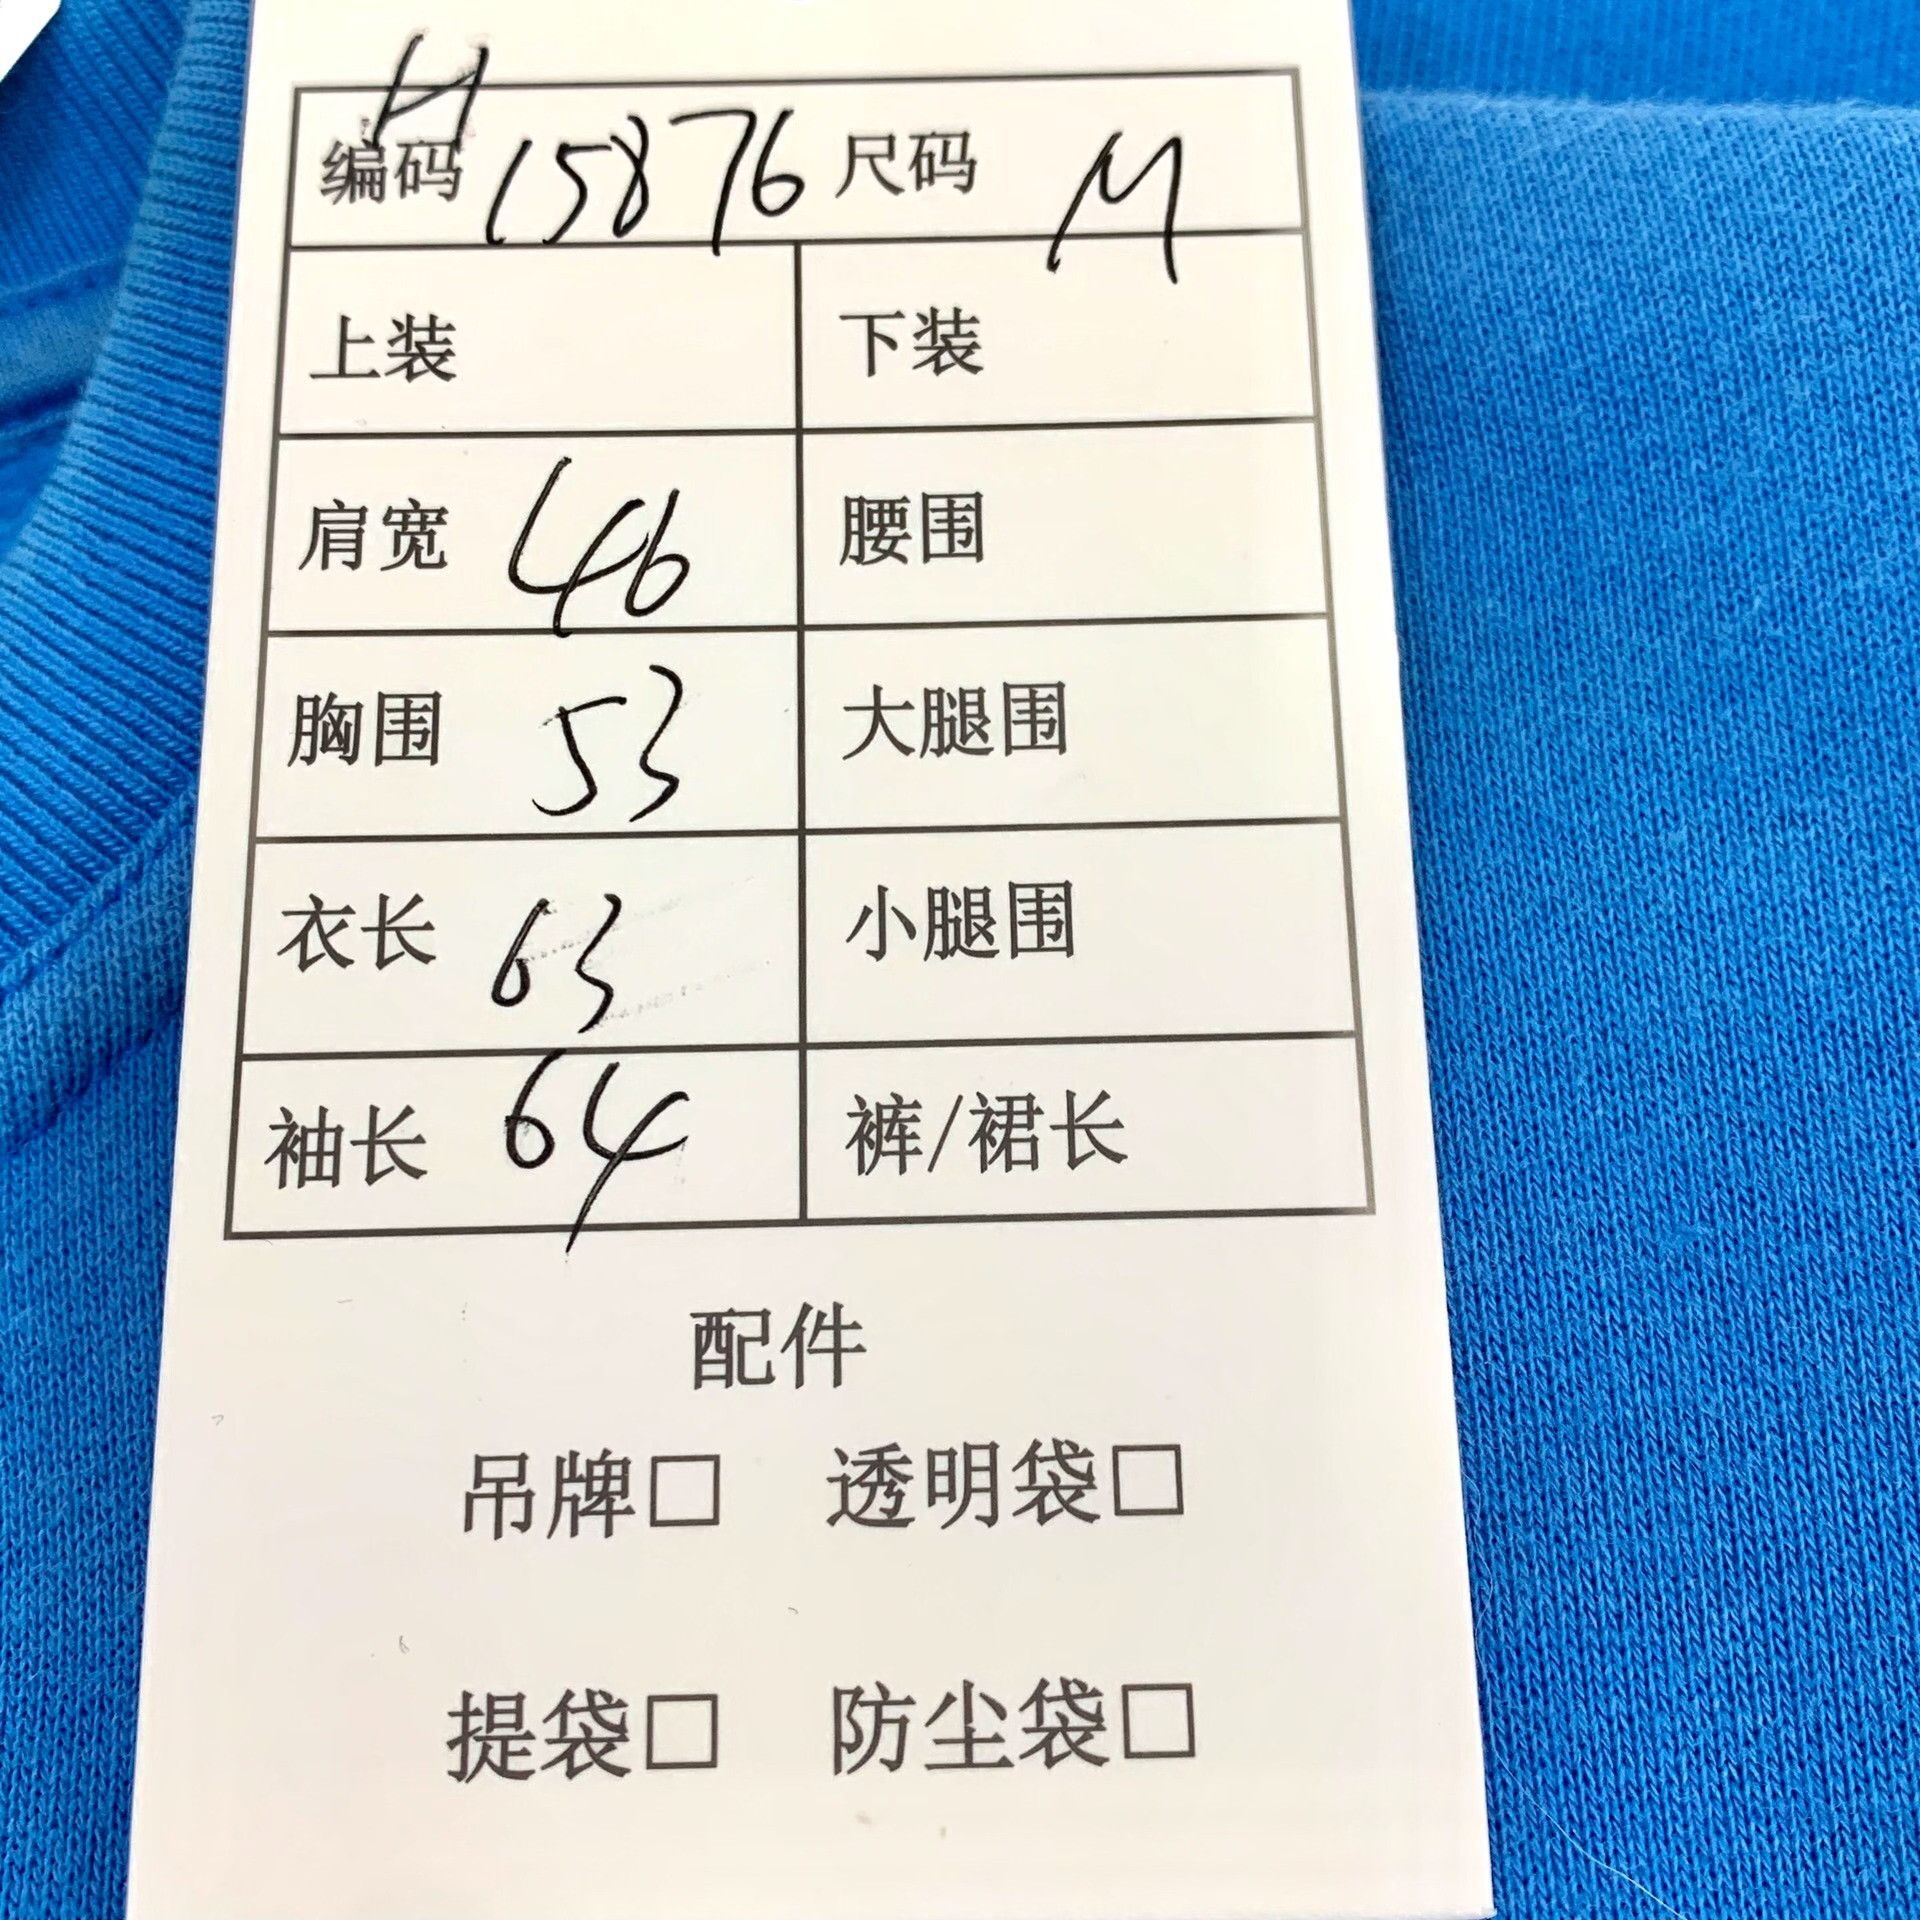 H
编码 15876 尺码 M
上装 下装
肩宽 46 腰围
胸围 53 大腿围
衣长 63 小腿围
袖长 64 裤/裙长
配件
吊牌□ 透明袋□
提袋□ 防尘袋□